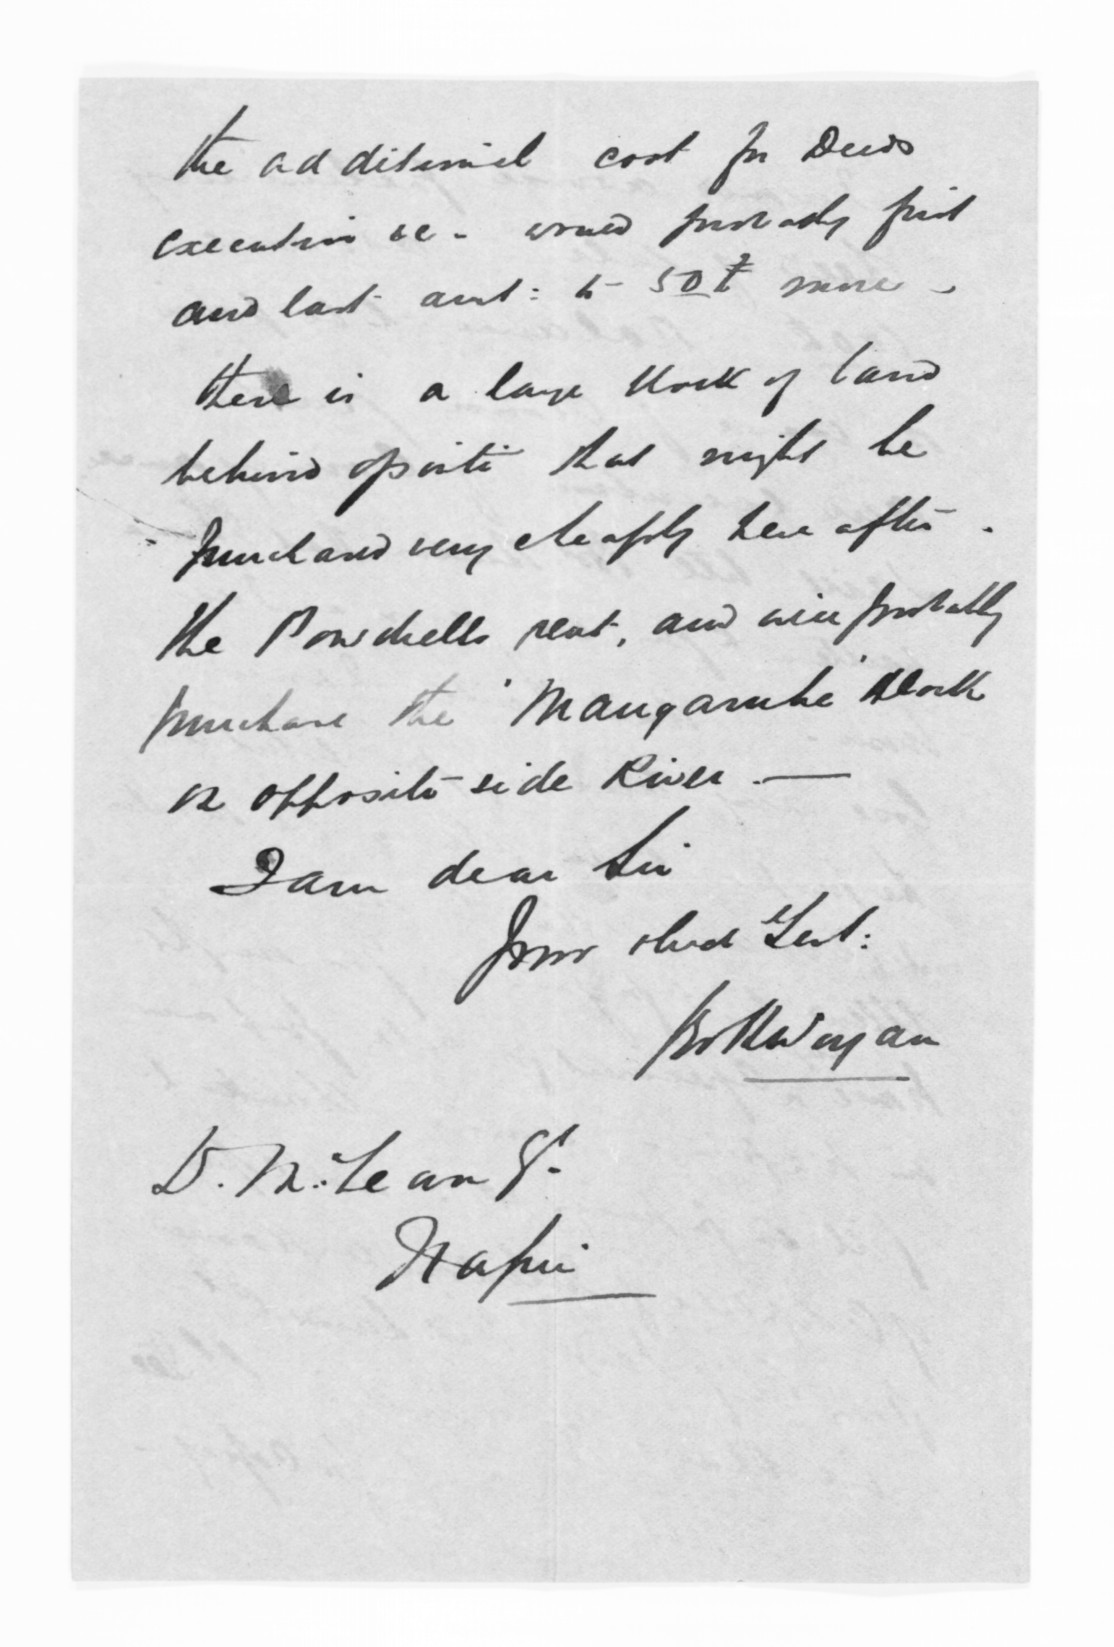 the additional cost for Deeds
execution &c - would probably first
and last amt: to 50£ more -
there is a large block of land
behind opsite that might be
purchased very cheaply here after -
the Powdrells rent, and will probably
purchase the "Mangaruhe" Block
on opposite side River . —
I am dear Sir
Your obed Sert:
D. McLean
Napier